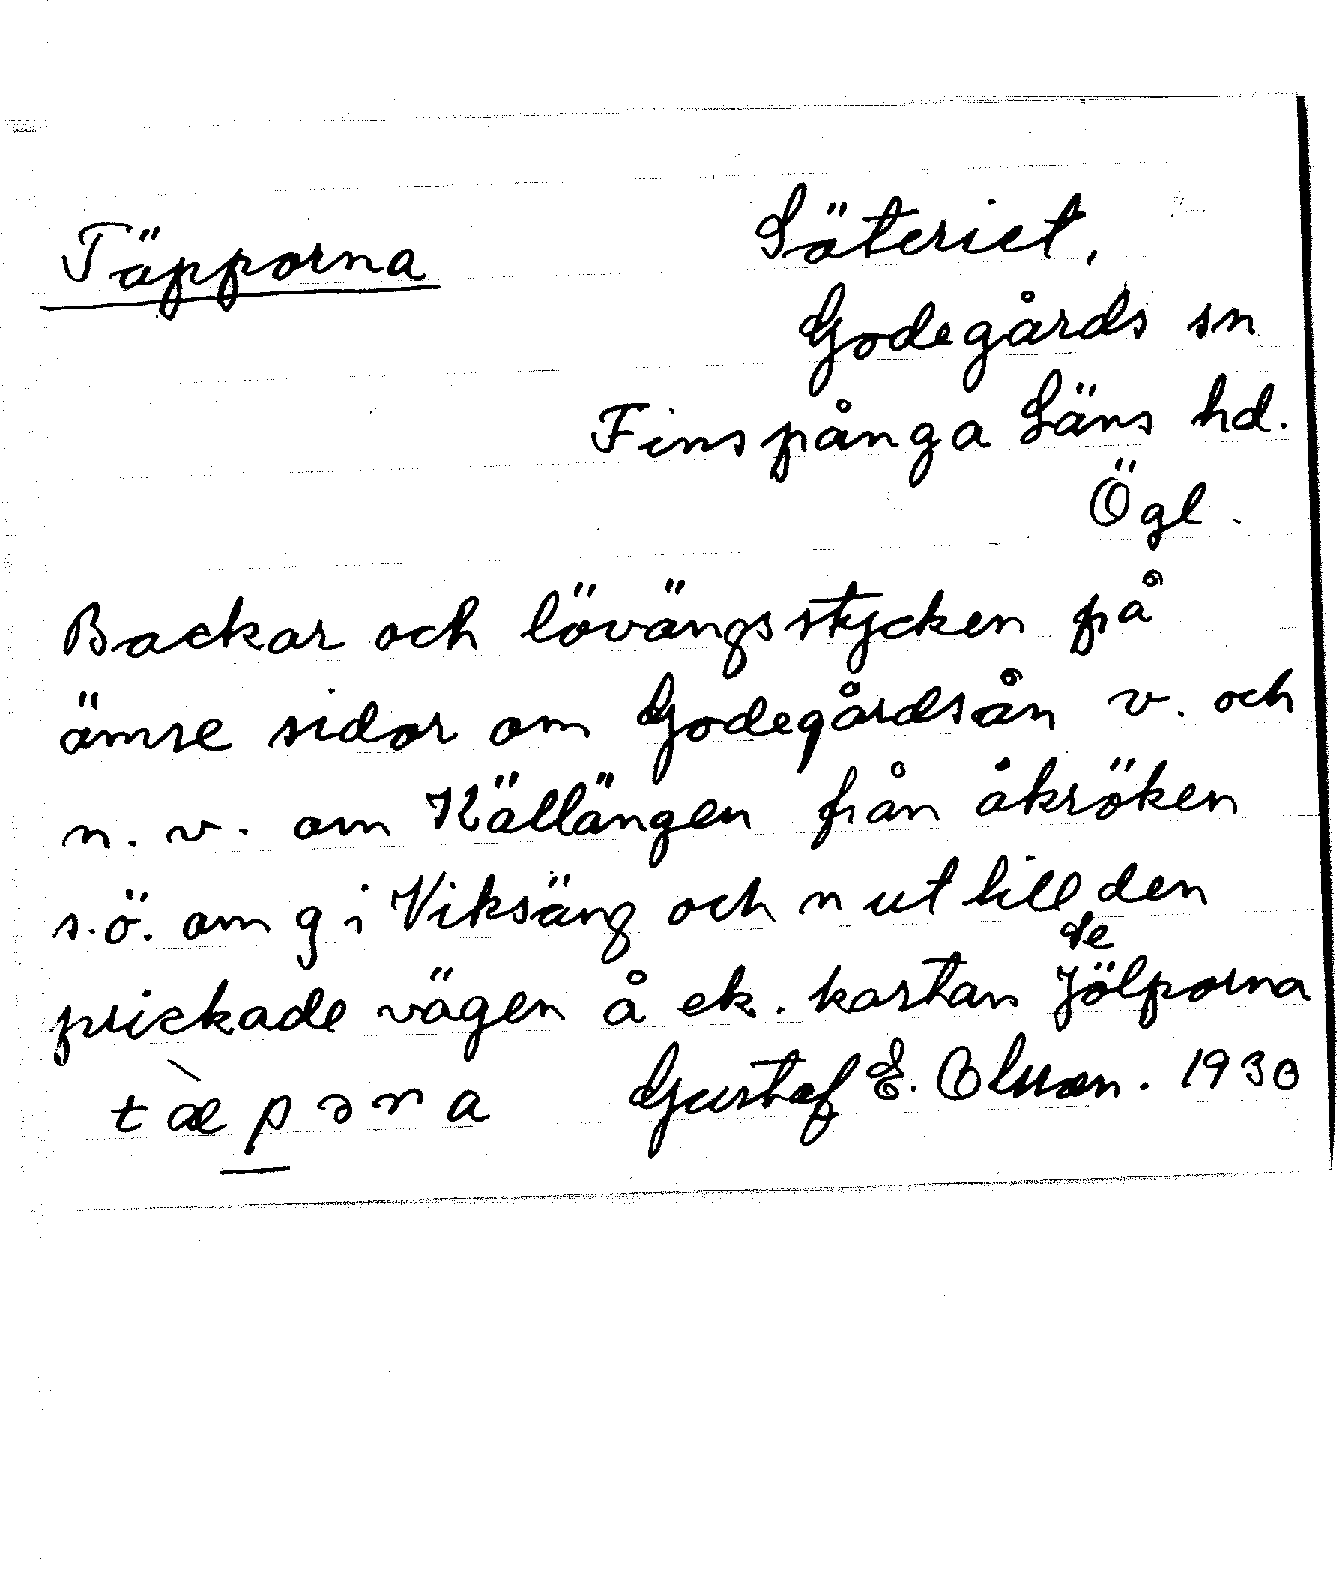 Täpporna
Säteriet,
Godegårds sn
Finspånga Läns hd.
Ögl.
Backar och lövängsstycken på
ömse sidor om Godegårdsån v. och
n. v. om Källängen från åkröken
s.ö. om g i Viksäng och n ut till den
prickade vägen å ek. kartan
de
tæpɔra Gustaf E. Olsson. 1930